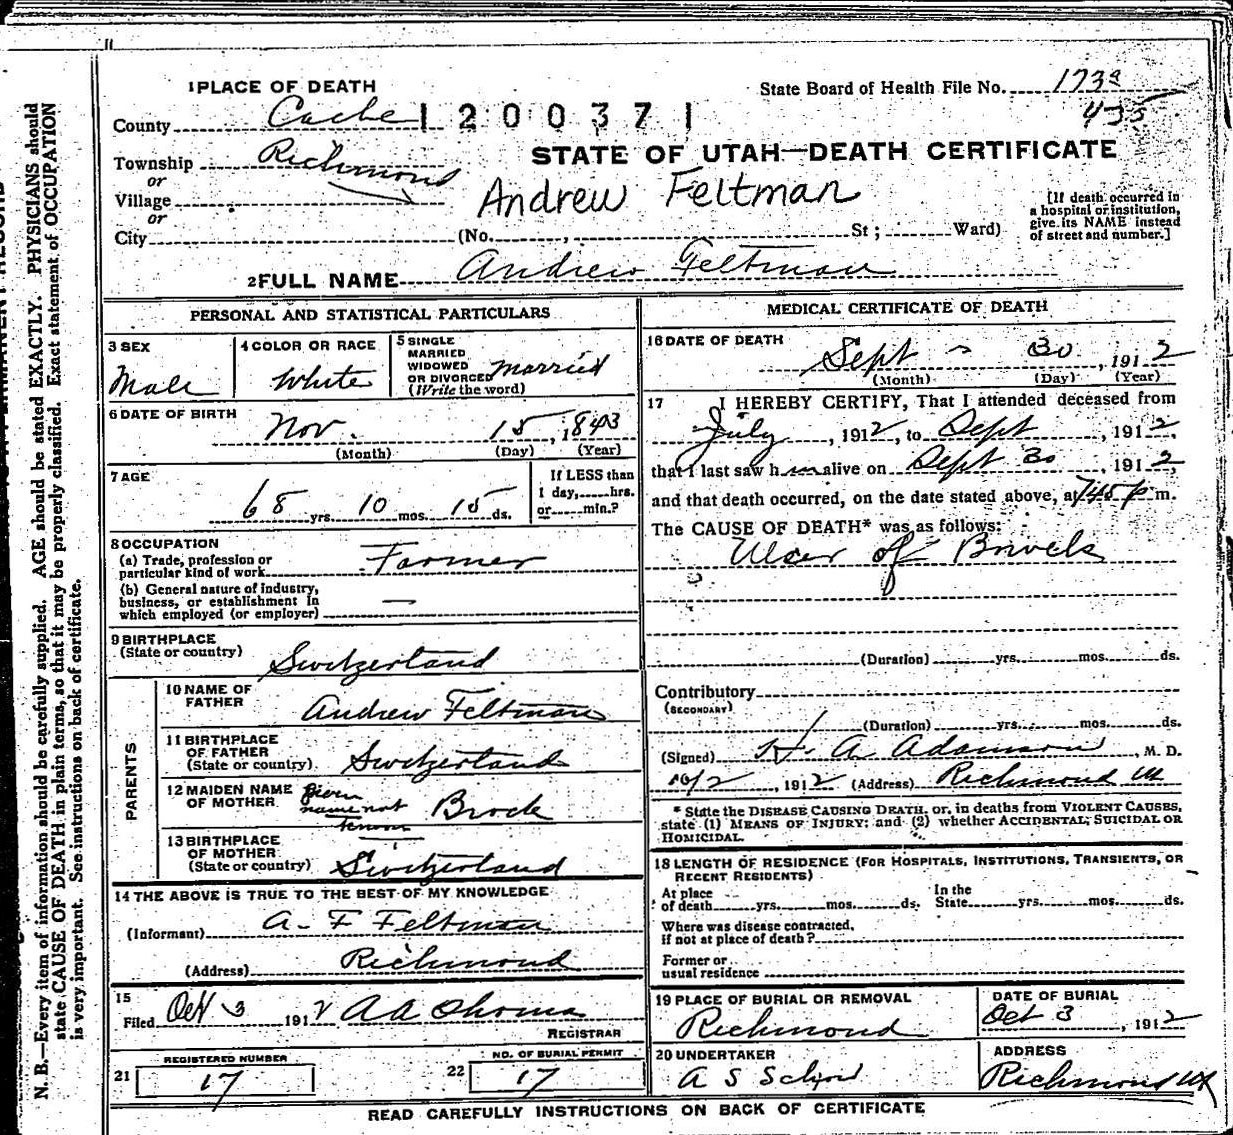 1 PLACE OF DEATH
State Board of Health File No. 1739
435
County Cache
1200371
STATE OF UTAH—DEATH CERTIFICATE
Township Richmond
or
Village
or
City
Andrew Feltman
(No. , St ; Ward)
[If death occurred in
a hospital or institution,
give its NAME instead
of street and number.]
2 FULL NAME Andrew Feltman
PERSONAL AND STATISTICAL PARTICULARS
3 SEX
Male
4 COLOR OR RACE
White
5 SINGLE
MARRIED
WIDOWED
OR DIVORCED
(Write the word)
married
6 DATE OF BIRTH
Nov. 15, 1843
(Month) (Day) (Year)
7 AGE
68 yrs. 10 mos. 15 ds.
If LESS than
1 day, hrs.
or min.?
8 OCCUPATION
(a) Trade, profession or
particular kind of work Farmer
(b) General nature of industry,
business, or establishment in
which employed (or employer) —
9 BIRTHPLACE
(State or country)
Switzerland
PARENTS
10 NAME OF
FATHER
Andrew Feltman
11 BIRTHPLACE
OF FATHER
(State or country) Switzerland
12 MAIDEN NAME
OF MOTHER
Given
name not
known
Brock
13 BIRTHPLACE
OF MOTHER
(State or country) Switzerland
14 THE ABOVE IS TRUE TO THE BEST OF MY KNOWLEDGE
(Informant) A. F Feltman
(Address) Richmond
15
Filed Oct 3 1912
REGISTRAR
21 REGISTERED NUMBER
17
22 NO. OF BURIAL PERMIT
17
MEDICAL CERTIFICATE OF DEATH
16 DATE OF DEATH
Sept 30, 1912
(Month) (Day) (Year)
17 I HEREBY CERTIFY, That I attended deceased from
July, 1912, to Sept, 1912,
that I last saw him alive on Sept 30, 1912,
and that death occurred, on the date stated above, at 745 p m.
The CAUSE OF DEATH* was as follows:
Ulcer of Bowels
(Duration) yrs. mos. ds.
Contributory
(SECONDARY)
(Duration) yrs. mos. ds.
(Signed) H. A. Adamson, M. D.
10/2, 1912 (Address) Richmond Ut
* State the DISEASE CAUSING DEATH, or, in deaths from VIOLENT CAUSES,
state (1) MEANS OF INJURY; and (2) whether ACCIDENTAL, SUICIDAL OR
HOMICIDAL.
18 LENGTH OF RESIDENCE (FOR HOSPITALS, INSTITUTIONS, TRANSIENTS, OR
RECENT RESIDENTS)
At place
of death yrs. mos. ds.
In the
State yrs. mos. ds.
Where was disease contracted,
if not at place of death?
Former or
usual residence
19 PLACE OF BURIAL OR REMOVAL
Richmond
DATE OF BURIAL
Oct 3, 1912
20 UNDERTAKER
A S
ADDRESS
Richmond Ut
READ CAREFULLY INSTRUCTIONS ON BACK OF CERTIFICATE
N. B.—Every item of information should be carefully supplied. AGE should be stated EXACTLY. PHYSICIANS should
state CAUSE OF DEATH in plain terms, so that it may be properly classified. Exact statement of OCCUPATION
is very important. See instructions on back of certificate.